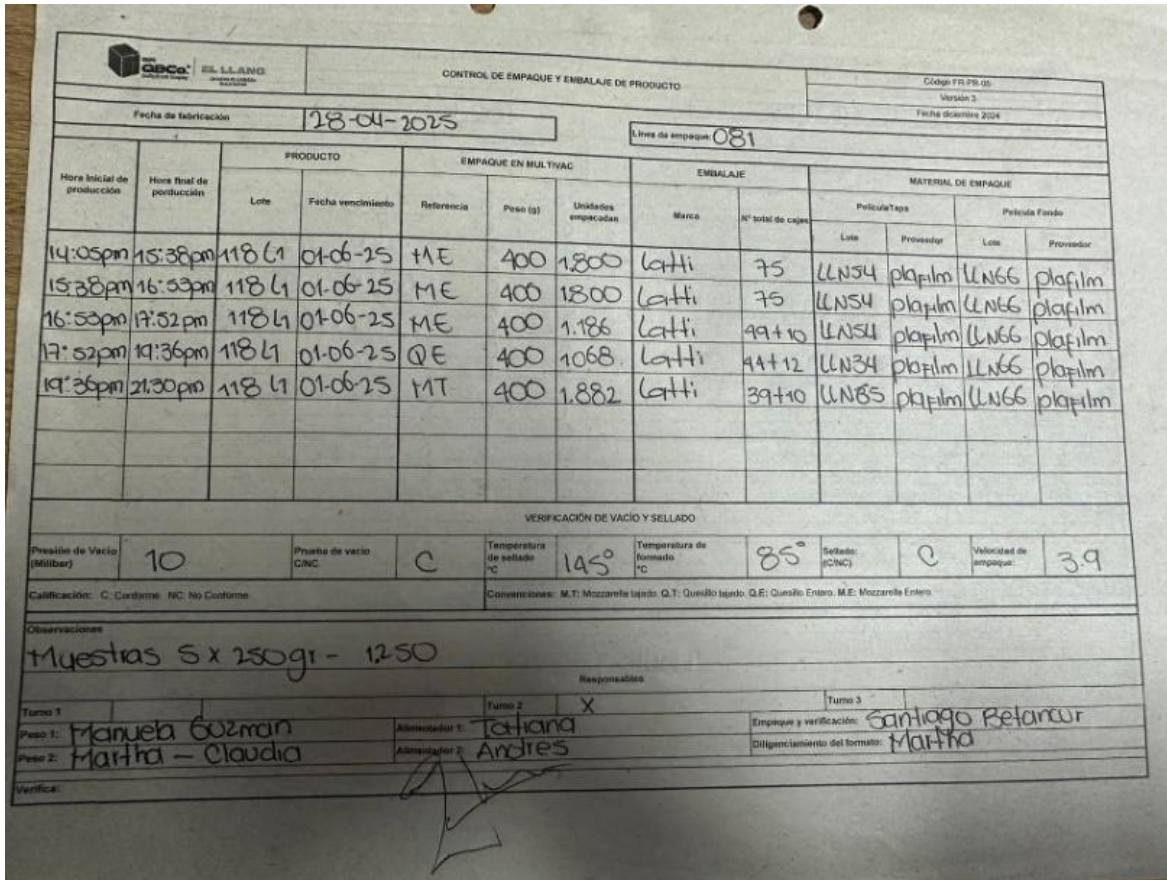 QBCo. EL LLANO
CONTROL DE EMPAQUE Y EMBALAJE DE PRODUCTO
Código FR-PR-05
Versión 3
Fecha diciembre 2024
Fecha de fabricación 28-04-2025
Línea de empaque: 081
PRODUCTO EMPAQUE EN MULTIVAC EMBALAJE MATERIAL DE EMPAQUE
Hora Inicial de producción Hora final de porducción Lote Fecha vencimiento Referencia Peso (g) Unidades empacadas Marca N° total de cajas Película Tapa Película Fondo
Lote Proveedor Lote Proveedor
14:05pm 15:38pm 118 L1 01-06-25 ME 400 1.800 Latti 75 LLN54 plafilm LLN66 plafilm
15:38pm 16:53pm 118 L1 01-06-25 ME 400 1800 Latti 75 LLN54 plafilm LLN66 plafilm
16:53pm 17:52pm 118 L1 01-06-25 ME 400 1.186 Latti 49+10 LLN54 plafilm LLN66 plafilm
17:52pm 19:36pm 118 L1 01-06-25 QE 400 1068. Latti 44+12 LLN34 plafilm LLN66 plafilm
19:36pm 21:30pm 118 L1 01-06-25 MT 400 1.882 Latti 39+10 LLN85 plafilm LLN66 plafilm
VERIFICACIÓN DE VACÍO Y SELLADO
Presión de Vacío (Milibar) 10 Prueba de vacío C/NC. C Temperatura de sellado °C 145° Temperatura de formado °C 85° Sellado: (C/NC) C Velocidad de empaque: 3.9
Calificación: C: Conforme NC: No Conforme Convenciones: M.T: Mozzarella tajado. Q.T: Quesillo tajado. Q.E: Quesillo Entero. M.E: Mozzarella Entero.
Observaciones
Muestras 5 x 250gr - 1.250
Responsables
Turno 1 Turno 2 X Turno 3
Peso 1: Manuela Guzman Alimentador 1: Tatiana Empaque y verificación: Santiago Betancur
Peso 2: Martha - Claudia Alimentador 2: Andres Diligenciamiento del formato: Martha
Verifica: